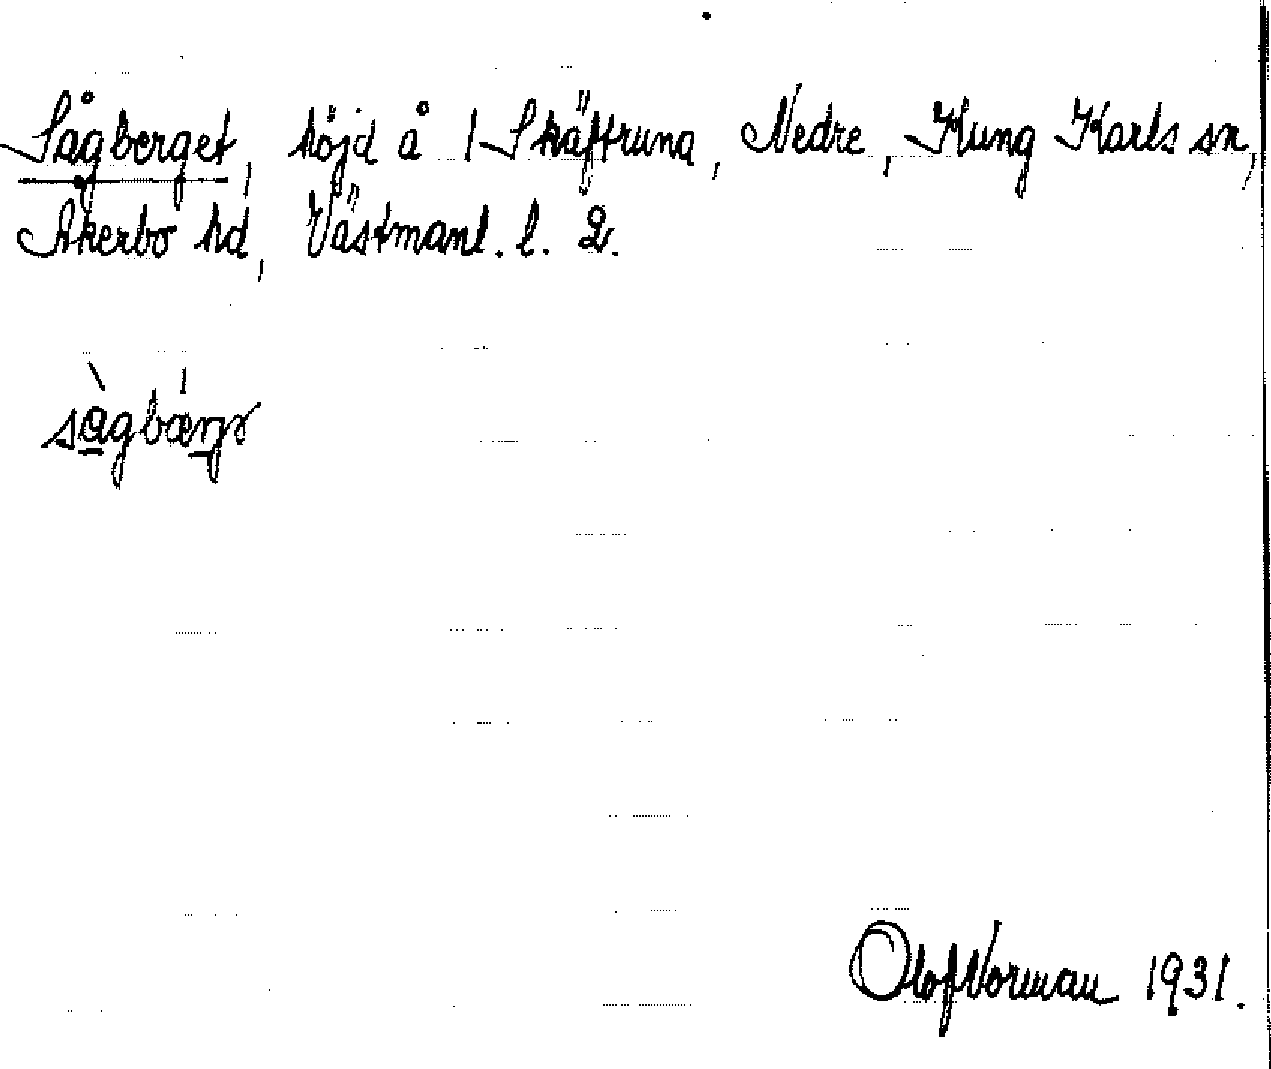 Sågberget, höjd å 1 Skäftruna, Nedre, Kung Karls sn,
Åkerbo hd, Västmanl. l. 2.
sàgbæŋɞ
Olof Norman 1931.